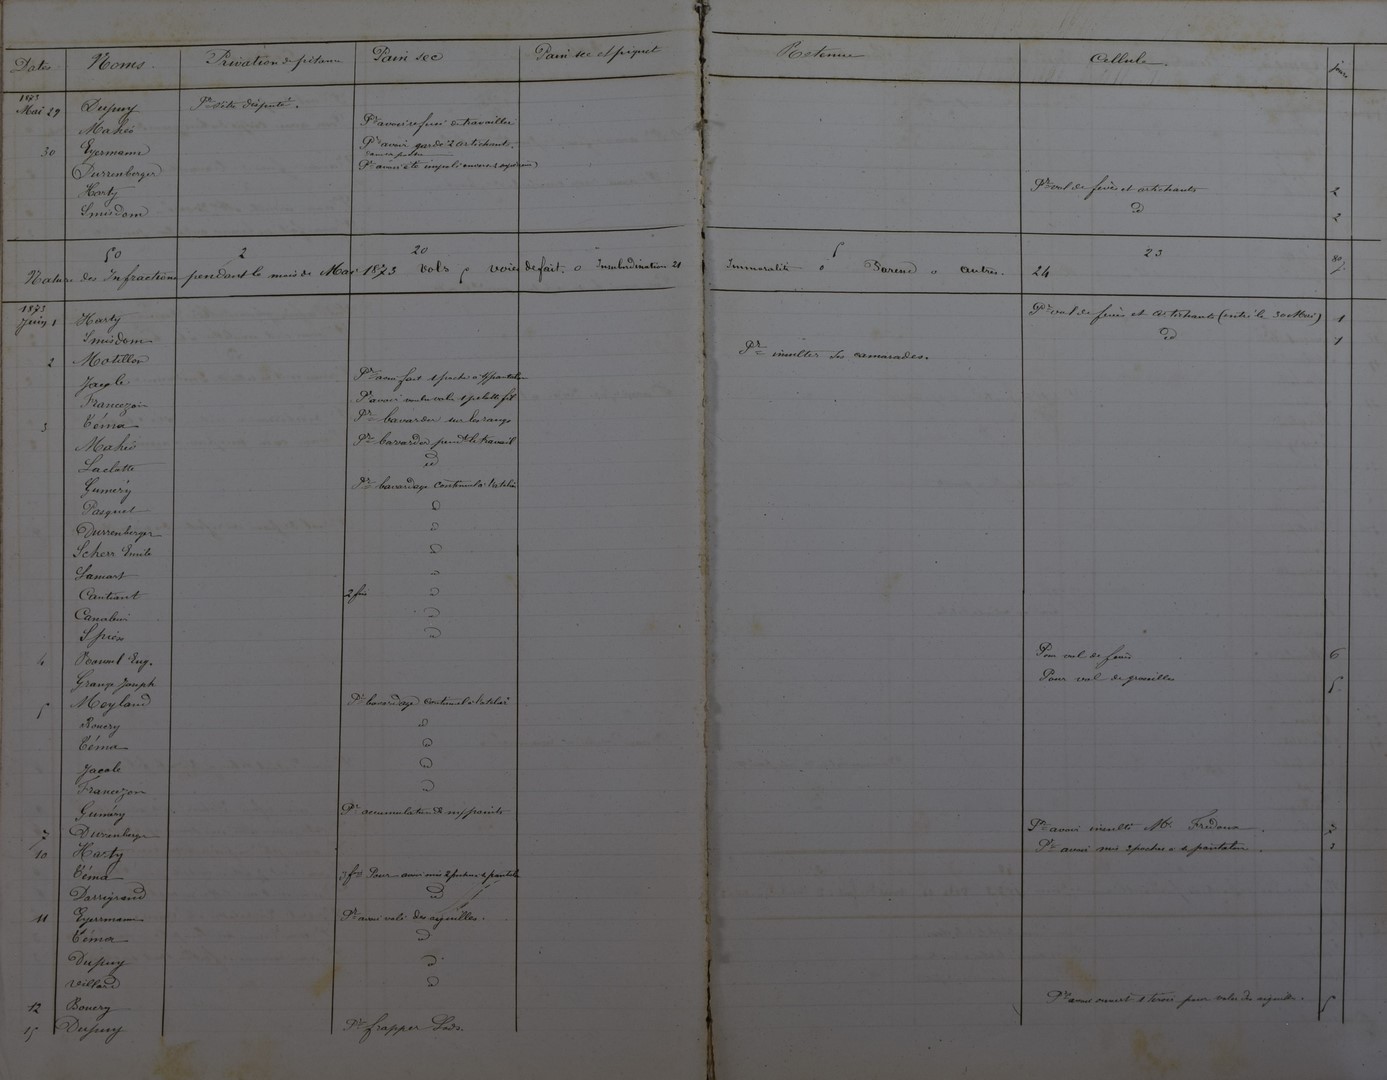 Dates Noms. Privation de pitance Pain sec Pain sec et piquet Retenue Cellule. jours
1873
Mai 29 Dupuy Pr s'être disputé.
Mahé Pr avoir refusé de travailler
30 Eyermann Pr avoir gardé 2 artichauts.
Durrenberger Pr avoir été impoli envers
Harty Pr vol de fèves et artichauts 2
Smisdom d 2
50 2 20 5 23 80
Nature des Infractions pendant le mois de Mai 1873 Vols 5 voies de fait. 0 Insubordination 21 Immoralité 0 Paresse 0 Autres. 24
1873
Juin 1 Harty Pr vol de fèves et artichauts (entré le 30 Mai) 1
Smisdom d 1
2 Motillon Pr insulter ses camarades.
Jacole Pr avoir fait 1 poche à 1 pantalon
Francezon Pr avoir voulu voler 1 pelotte fil
3 Téma Pr bavarder sur les rangs
Mahé Pr bavarder pendt le travail
Laclotte d
Guméry Pr bavardage continuel à l'atelier
Pasquet d
Durrenberger d
Scherr Emile d
Lamart d
Cantiant 2 fois d
Canalini d
Spiés d
4 Ravoul Eug. Pour vol de fèves 6
Grange Joseph Pour vol de groseilles 5
5 Meyland Pr bavardage continuel à l'atelier
Rouery d
Téma d
Jacole d
Francezon d
Guméry Pr accumulation de rapports
7 Durrenberger Pr avoir insulté Mr. 3
10 Harty Pr avoir mis 2 poches à 1 pantalon. 3
Téma 3 fois Pour avoir mis 2 poches à 1 pantalon
Darrigrand d
11 Eyermann Pr avoir volé des aiguilles.
Téma d
Dupuy d
Veillard d
12 Bouery Pr avoir ouvert 1 tiroir pour voler des aiguilles. 5
15 Dupuy Pr frapper